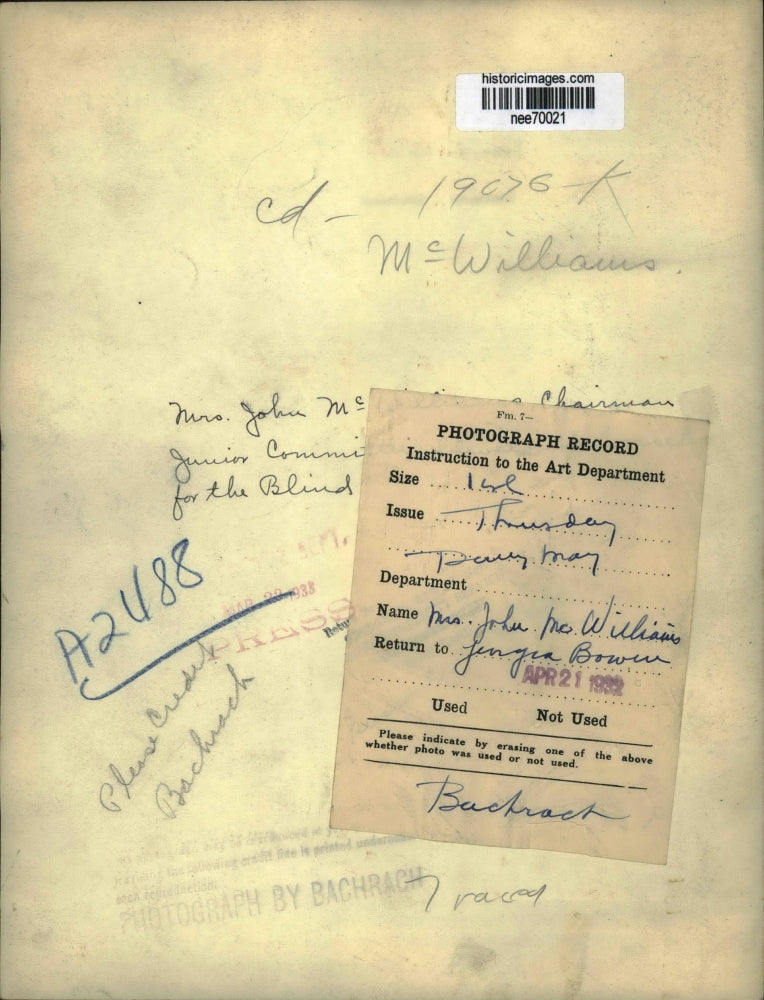 historicimages.com
nee70021
cd - 19076-K
McWilliams.
Mrs. John Mc Chairman
Junior Commi
for the Blind
Fm. 7—
PHOTOGRAPH RECORD
Instruction to the Art Department
Size 1 col
Issue Thursday
May
Department
Name Mrs. John McWilliams
Return to Georgia Bowen
APR 21
Used Not Used
Please indicate by erasing one of the above
whether photo was used or not used.
Bachrach
A2488
PRESS
Retu
Please Credit
Bachrach
the following credit line is printed
each reproduction
PHOTOGRAPH BY BACHRACH